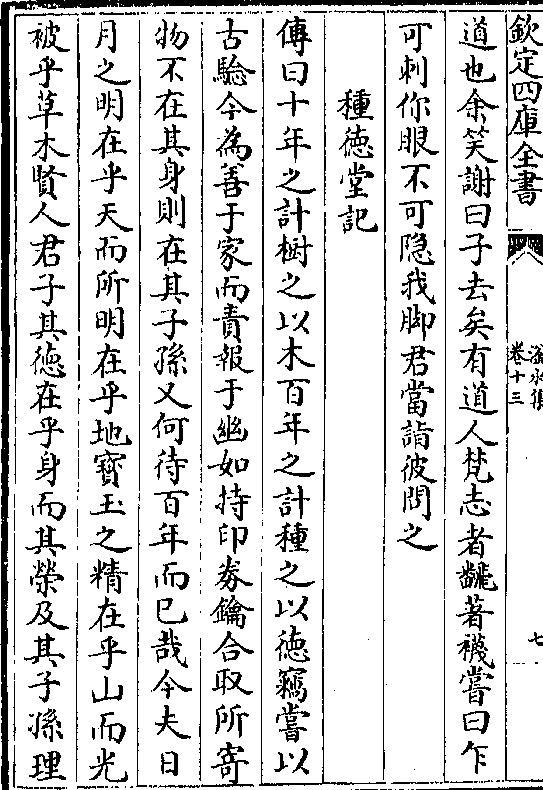 欽定四庫全書
滏水集
卷十三
七
道也余笑謝曰子去矣有道人梵志者飜著襪嘗曰乍
可刺你眼不可隐我脚君當詣彼問之
種徳堂記
傳曰十年之計樹之以木百年之計種之以徳竊嘗以
古驗今為善于家而責報于幽如持印劵鑰合取所寄
物不在其身則在其子孫又何待百年而已哉今夫日
月之明在乎天而所明在乎地寳玉之精在乎山而光
被乎草木賢人君子其徳在乎身而其榮及其子孫理